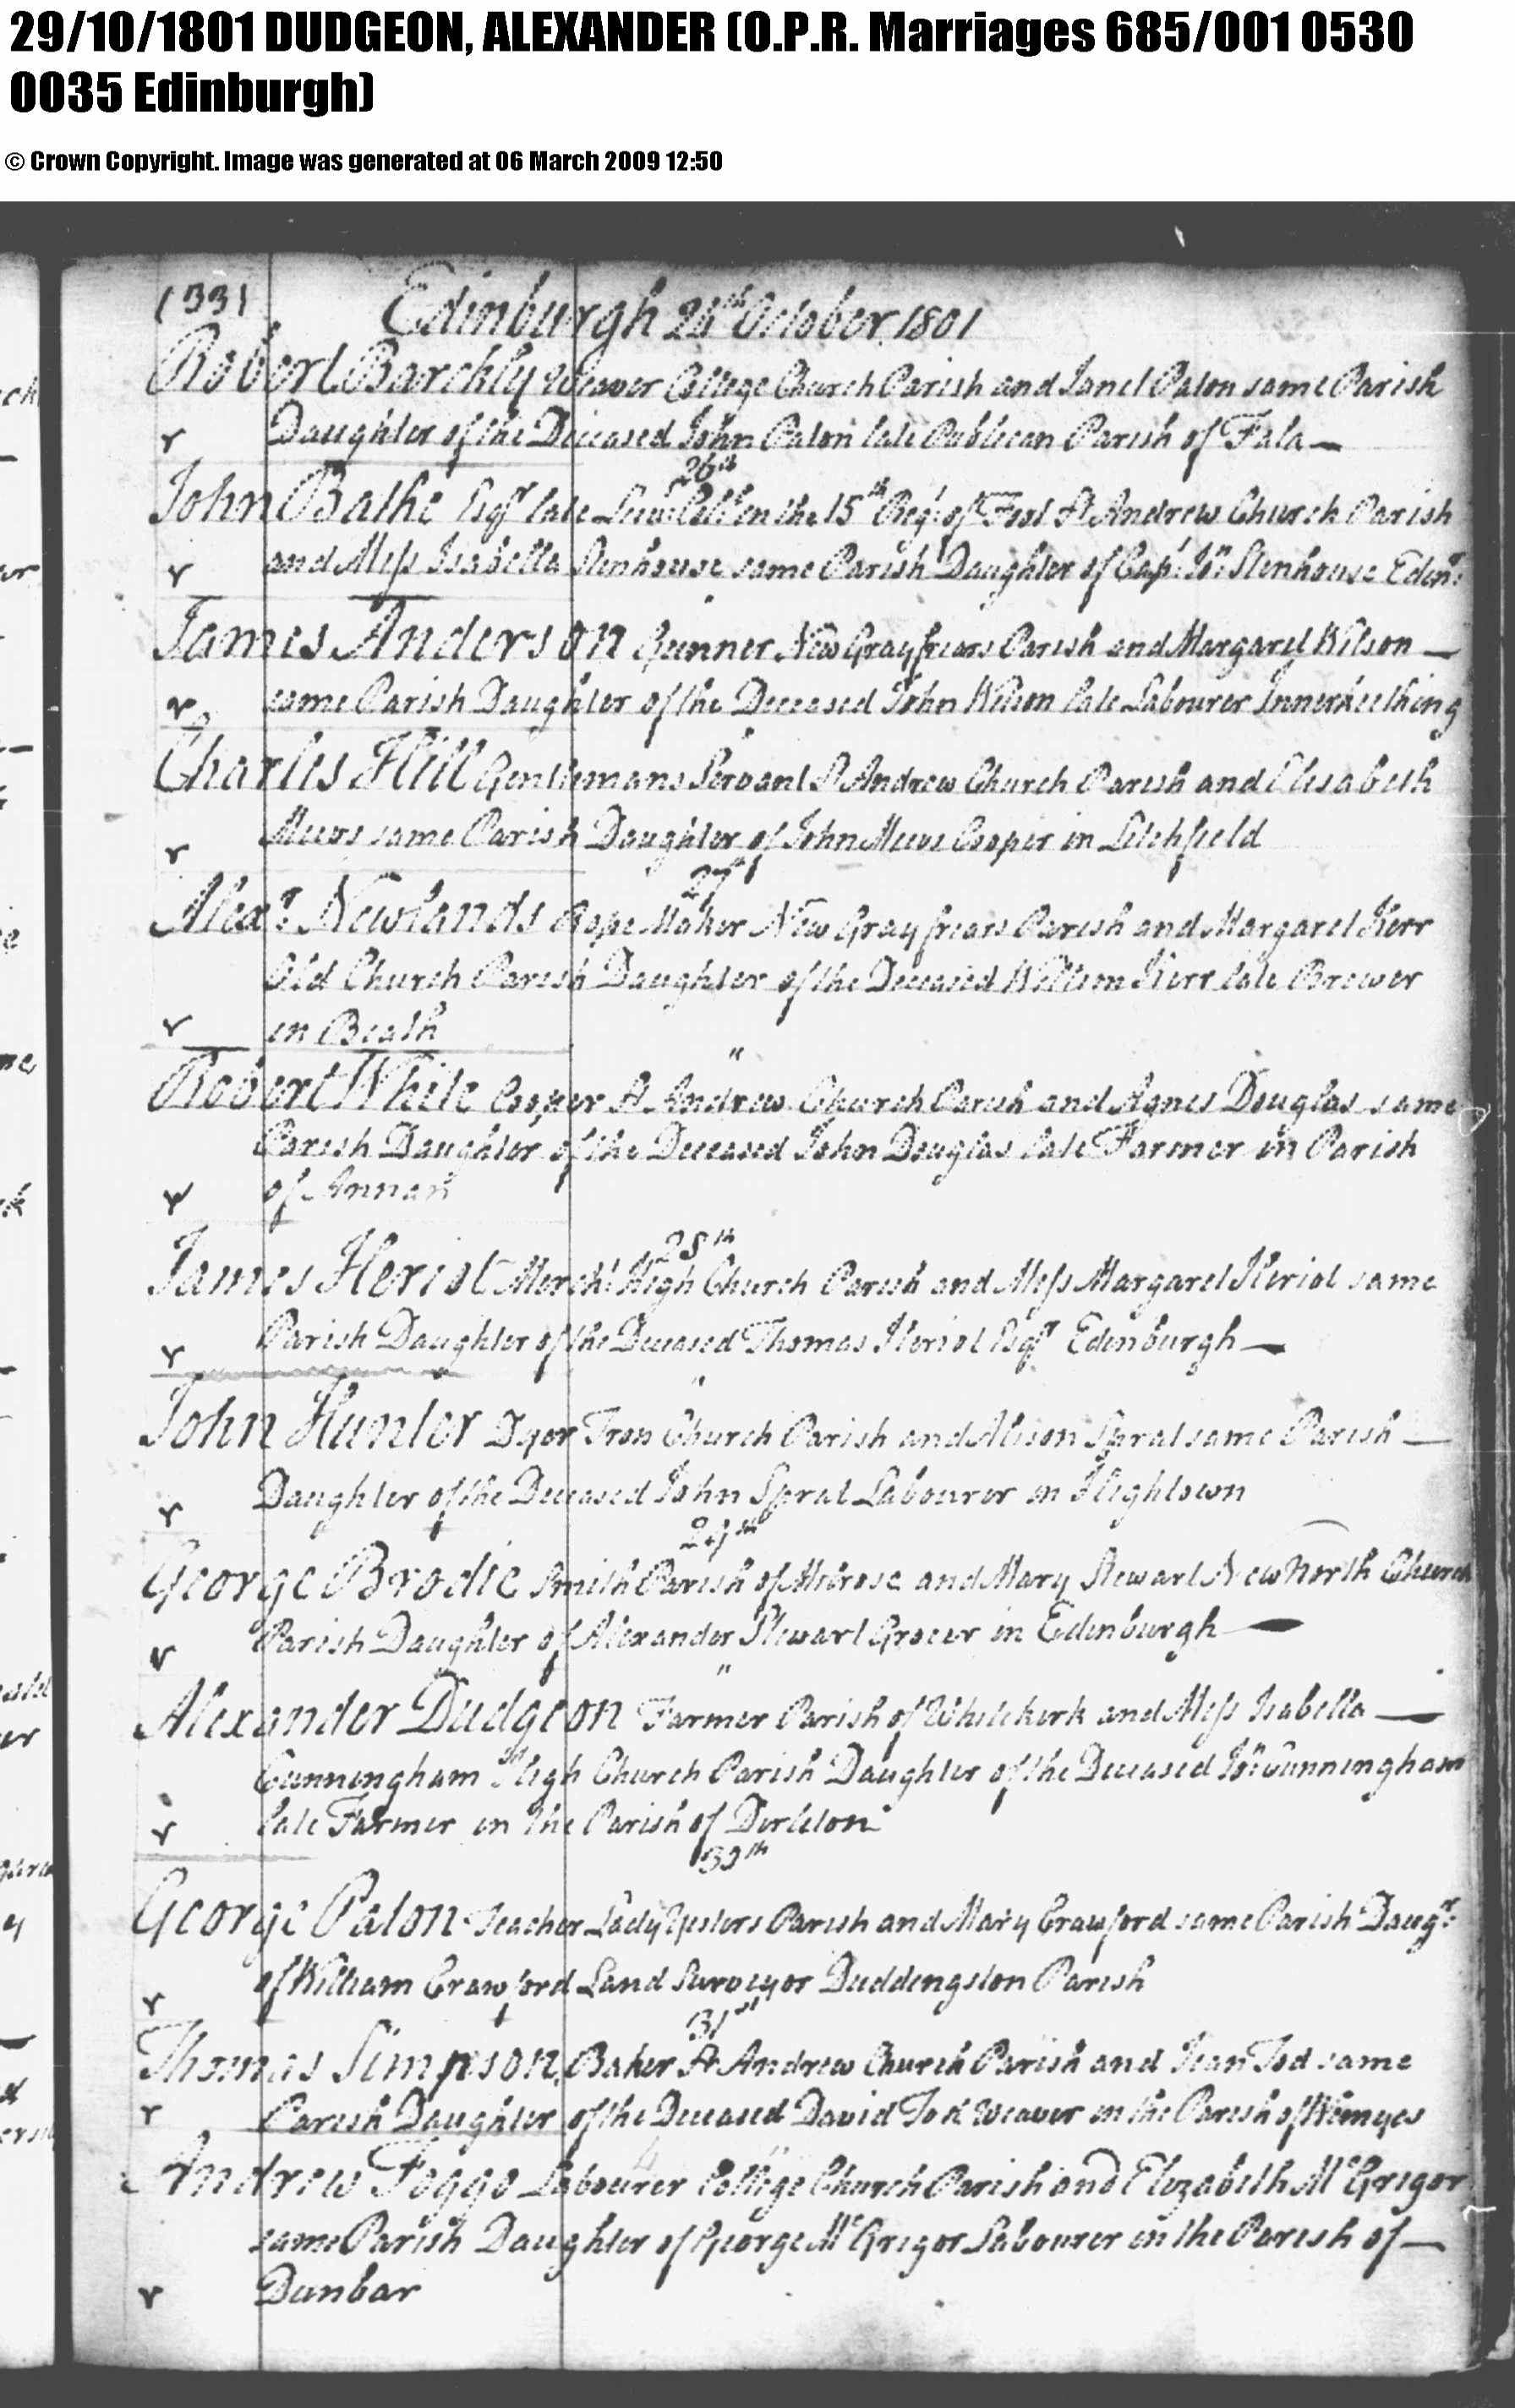 29/10/1801 DUDGEON, ALEXANDER (O.P.R. Marriages 685/001 0530
0035 Edinburgh)
© Crown Copyright. Image was generated at 06 March 2009 12:50
Edinburgh October 1801
Robert Barckly Weaver College Church Parish and Janet Paton same Parish
Daughter of the Deceased John Paton late Publican Parish of Fala
26th
John Esqr. late in the 15th Regt. of Foot St Andrew Church Parish
and Miss Isabella Stenhouse same Parish Daughter of Capt. Jno. Stenhouse Edinr.
James Anderson New Grayfriars Parish and Margaret Wilson
same Parish Daughter of the Deceased John Wilson late Labourer Innerkeithing
Charles Hill Gentlemans Servant St Andrew Church Parish and Elisabeth
same Parish Daughter of John Cooper in Litchfield
27
Alexr. Newlands Rope Maker New Grayfriars Parish and Margaret Kerr
Old Church Parish Daughter of the Deceased William Kerr late Brewer
in Beath
"
Robert White Cooper St Andrew Church Parish and Agnes Douglas same
Parish Daughter of the Deceased John Douglas late Farmer in Parish
of Annan
28th
James Heriot Mercht. High Church Parish and Miss Margaret Heriot same
Parish Daughter of the Deceased Thomas Heriot Esqr Edinburgh
"
John Hunter Dyer Tron Church Parish and Alison Sprat same Parish
Daughter of the Deceased John Sprat Labourer in Hightown
29th
George Brodie Smith Parish of Melrose and Mary Stewart New North Church
Parish Daughter of Alexander Stewart Grocer in Edinburgh
"
Alexander Dudgeon Farmer Parish of Whitekirk and Miss Isabella
Cunningham High Church Parish Daughter of the Deceased Jno. Cunningham
late Farmer in the Parish of Dirleton
30th
George Paton Teacher Lady Yesters Parish and Mary Crawford same Parish Daugr.
of William Crawford Land Surveyor Duddingston Parish
31st
Thomas Simpson Baker St Andrew Church Parish and Jean Tod same
Parish Daughter of the Deceased David Tod Weaver in the Parish of Wemyss
"
Andrew Foggo Labourer College Church Parish and Elizabeth McGrigor
same Parish Daughter of George McGrigor Labourer in the Parish of
Dunbar